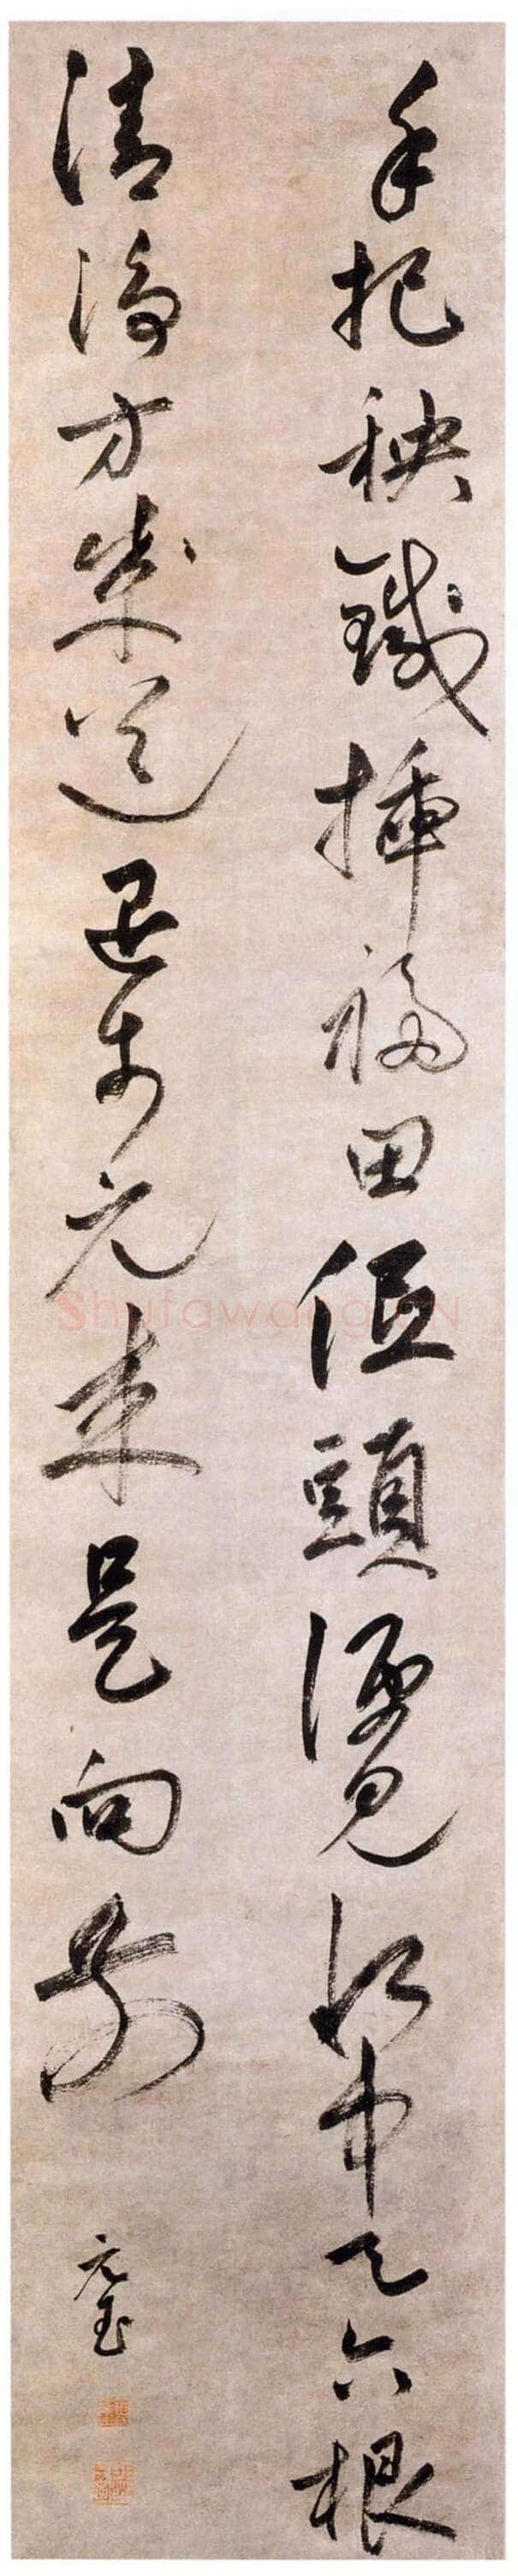 手把秧鍼挿福田低頭便見水中天六根
清淨方道退步元來是向前
元玉
Shufawang.CN